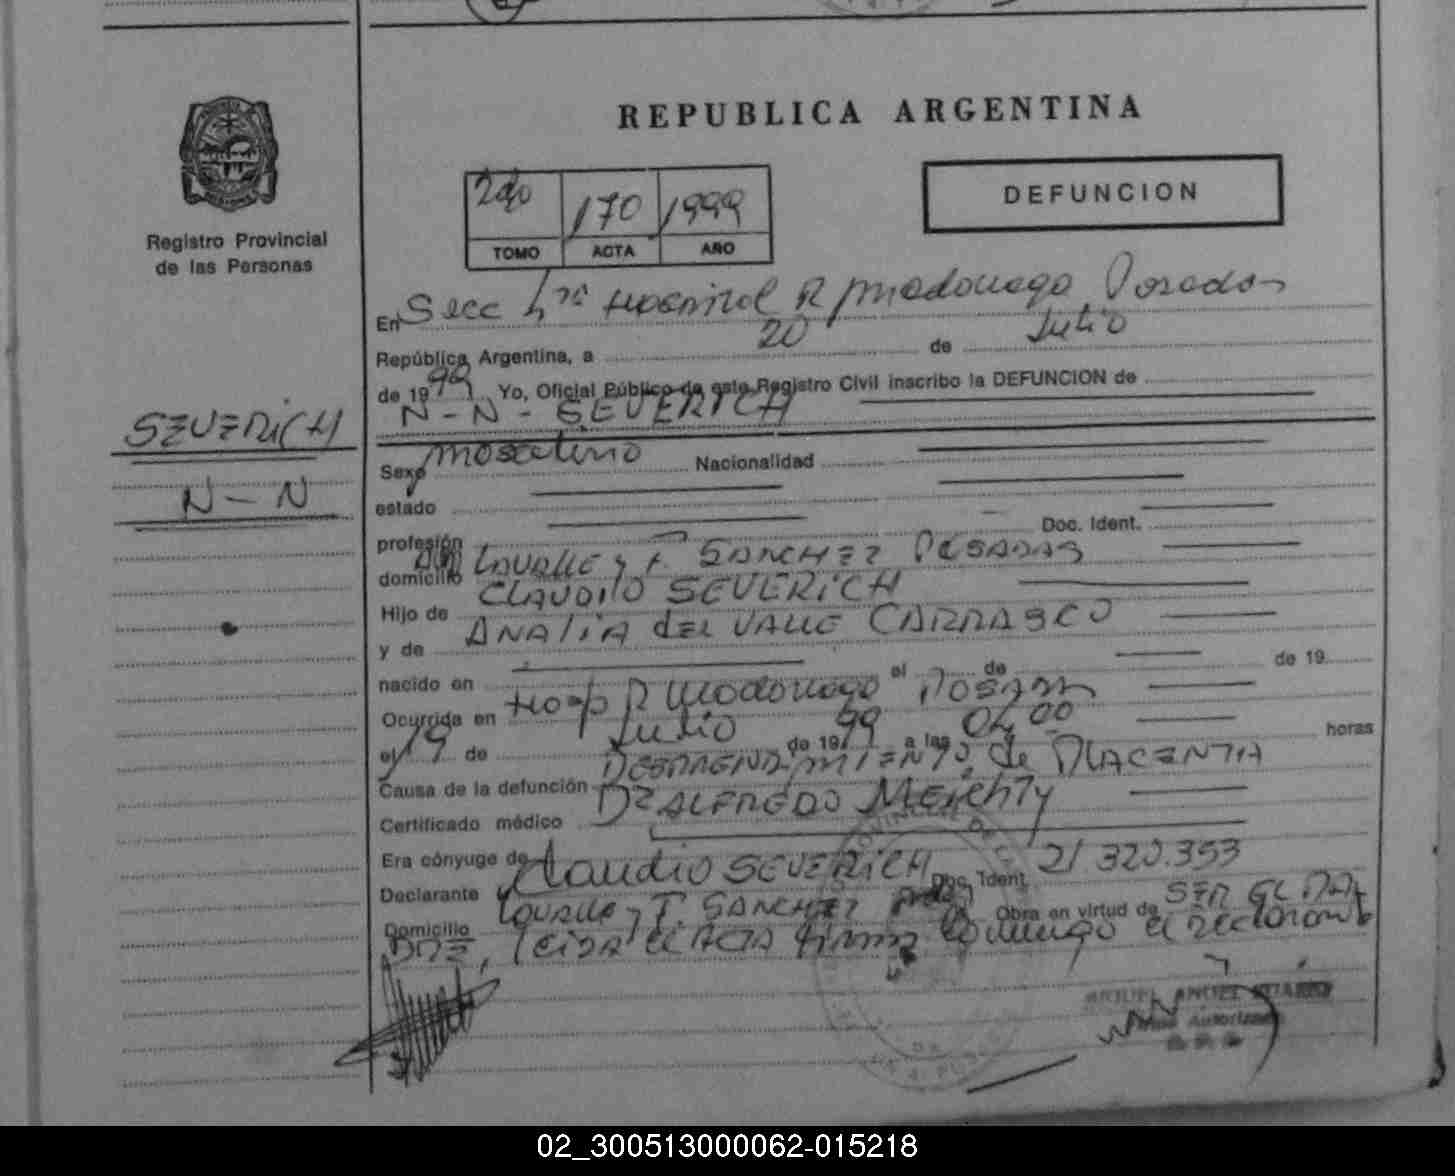 REPUBLICA ARGENTINA
Registro Provincial
de las Personas
2do 170 1999
TOMO ACTA AÑO
DEFUNCION
En Secc Hospital R Madariaga Posadas
República Argentina, a 20 de Julio
de 1999 Yo, Oficial Público de este Registro Civil inscribo la DEFUNCION de
N-N- SEVERICH
SEVERICH
N-N
Sexo masculino Nacionalidad
estado
profesión Doc. Ident.
domicilio LAVALLE y F. SANCHEZ POSADAS
Hijo de CLAUDIO SEVERICH
y de ANALIA del VALLE CARRASCO
nacido en el de de 19
Ocurrida en Hosp R Madariaga POSADAS
el 19 de Julio de 1999 a las 04,00 horas
Causa de la defunción DESPRENDIMIENTO de PLACENTA
Certificado médico Dr ALFREDO
Era cónyuge de
Declarante Claudio SEVERICH Doc. Ident. 21.320.353
Domicilio LAVALLE y F. SANCHEZ Obra en virtud de SER EL PA-
DRE, leida el ACTA firma conmigo el declarante
MIGUEL ANGEL
02_300513000062-015218